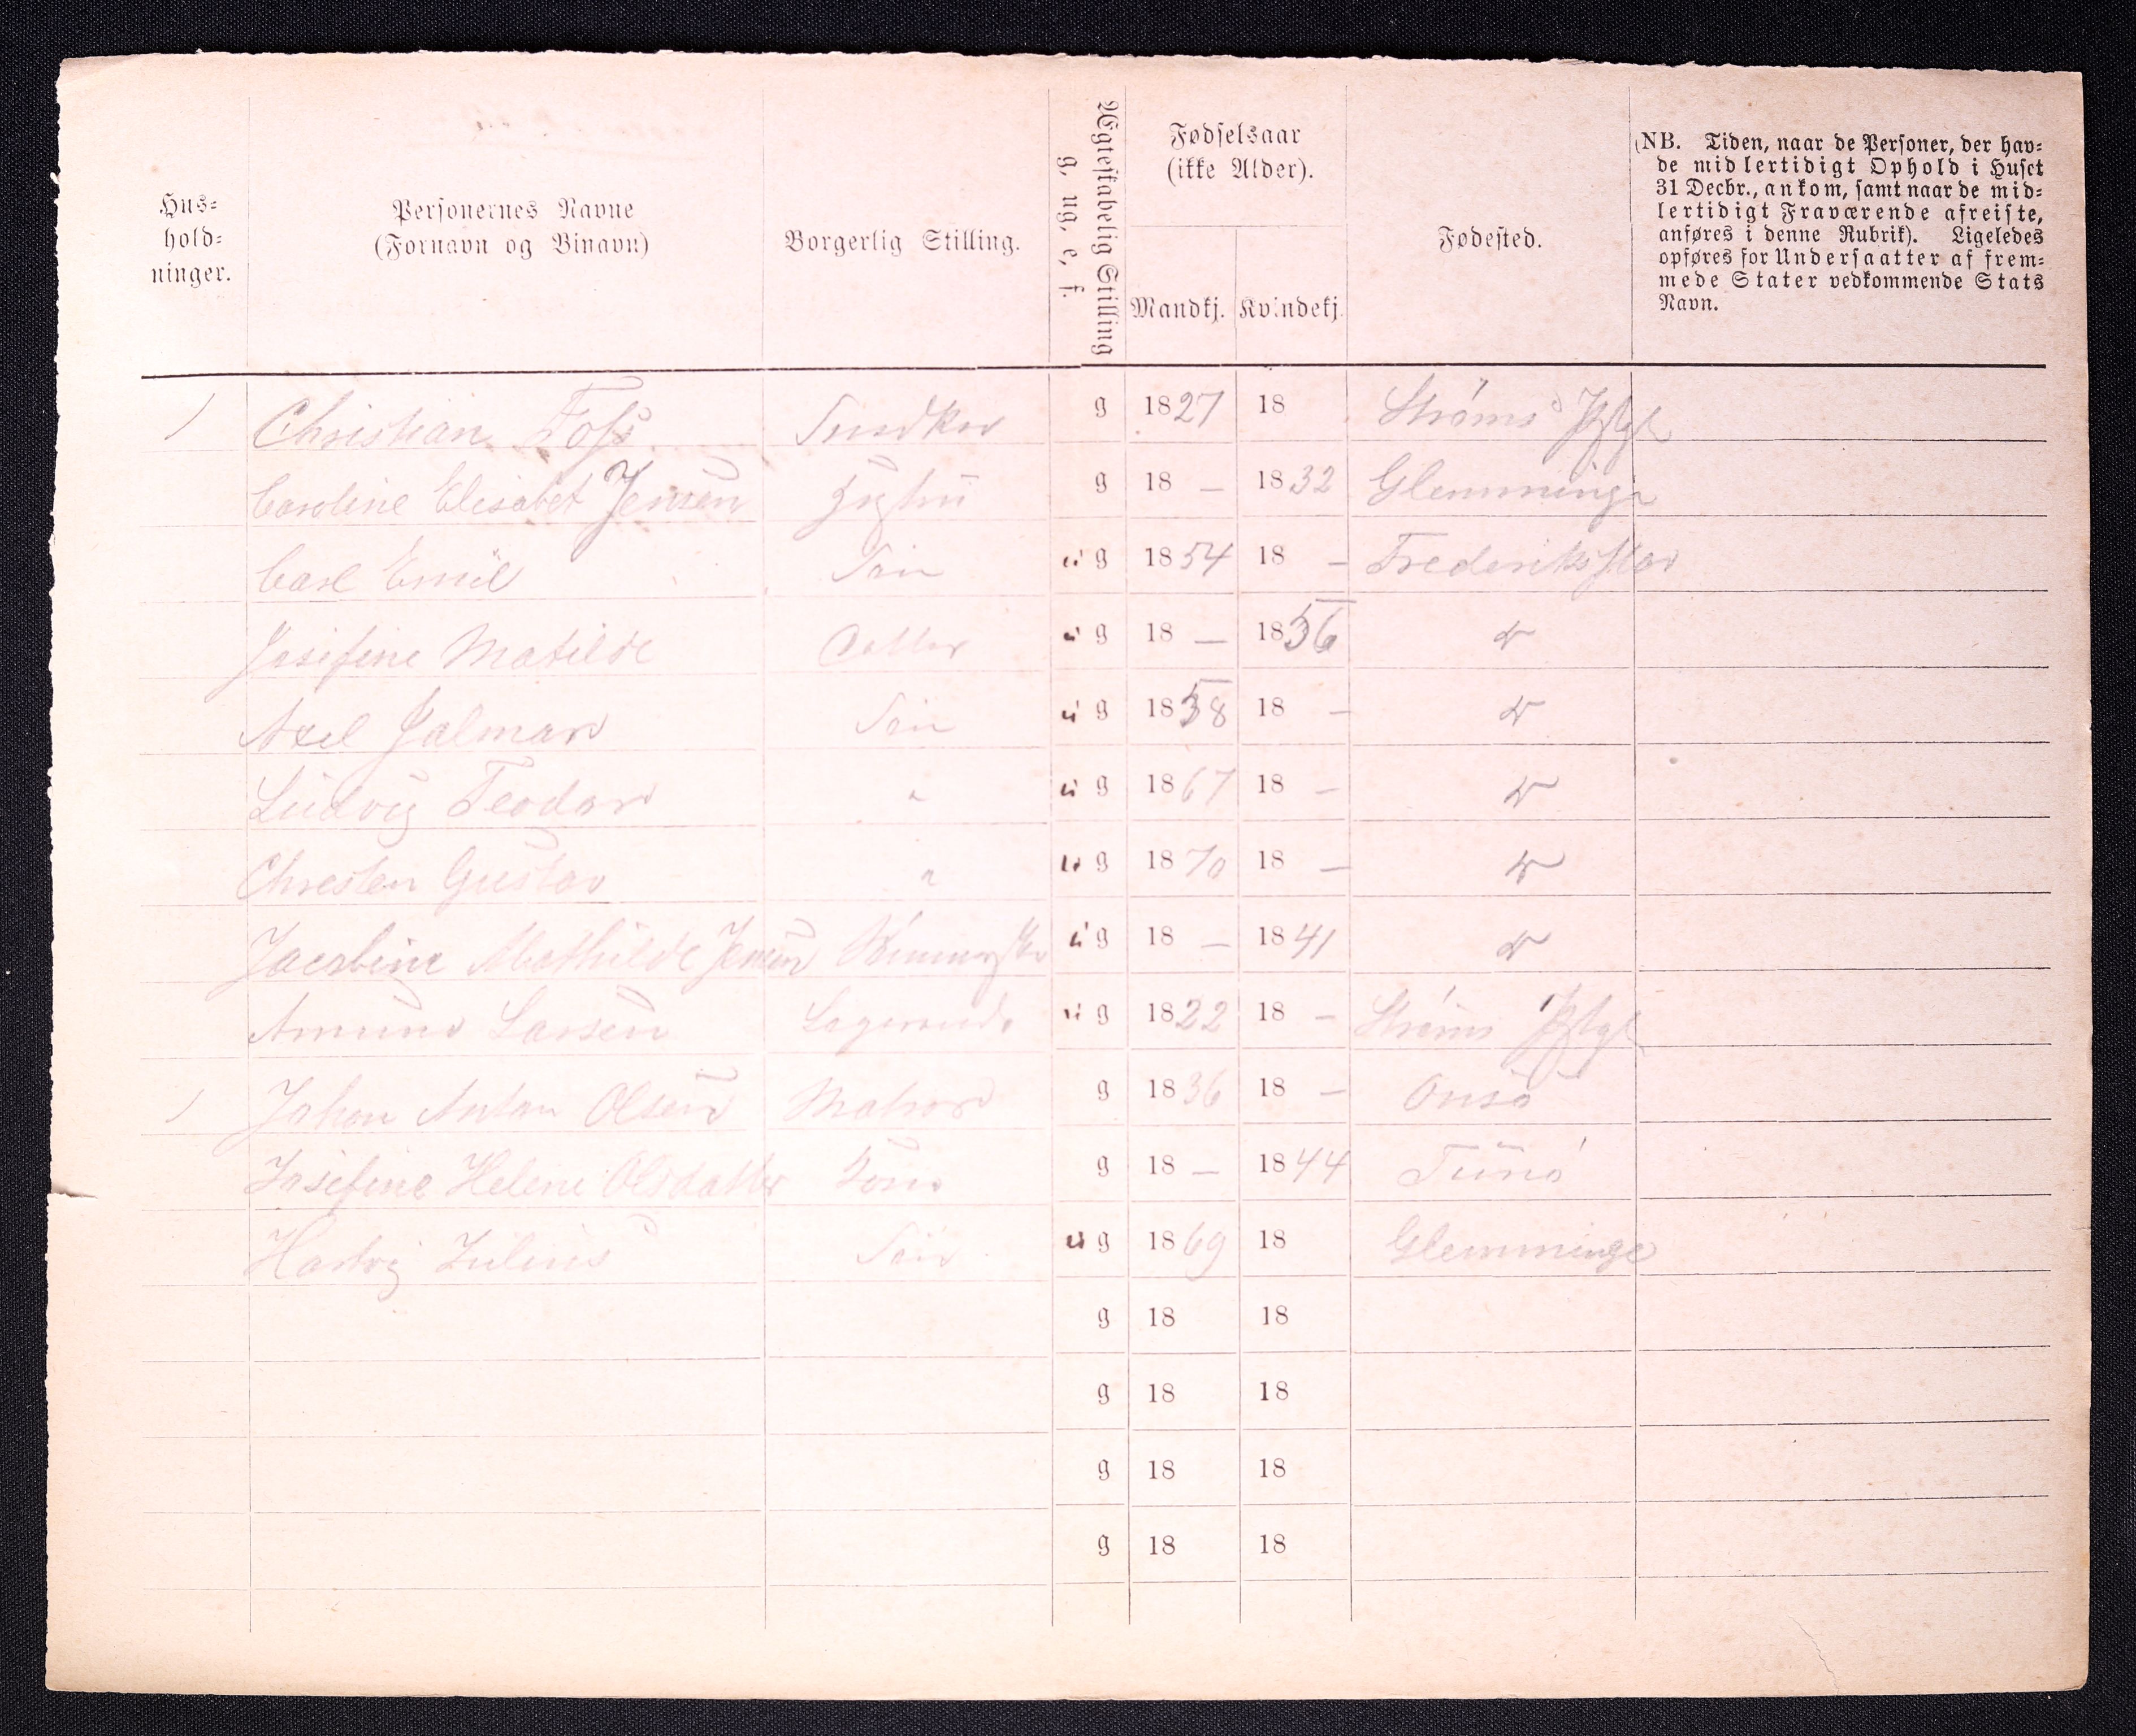 Hus=
hold=
ninger.
Personernes Navne
(Fornavn og Binavn)
Borgerlig Stilling.
Ægteskabelig Stilling
g, ug, e, f.
Fødselsaar
(ikke Alder).
Mandkj. Kvindekj.
Fødested.
(NB. Tiden, naar de Personer, der hav=
de midlertidigt Ophold i Huset
31 Decbr., ankom, samt naar de mid=
lertidigt Fraværende afreiste,
anføres i denne Rubrik). Ligeledes
opføres for Undersaatter af frem=
mede Stater vedkommende Stats
Navn.
1 Christian Foss Snedker g 1827 18 Strøms
Caroline Elisabet Jensen g 18 – 1832 Glemminge
Carl Emil Sön ug 1854 18 – Frederikstad
Josifine Matilde Datter ug 18 – 1856 do
Axel Jalmar Sön ug 1858 18 – do
Ludvig Teodor " ug 1867 18 – do
Chresten Gustav " ug 1870 18 – do
Jacobine Mathilde Jensen ug 18 – 1841 do
Amund Larsen Logerende ug 1822 18 – Strøms
1 Johan Anton Olsen Matros g 1836 18 – Onsö
Josefine Helene Olsdatter Kone g 18 – 1844 Tunö
Hartvig Julius Sön ug 1869 18 Glemminge
g 18 18
g 18 18
g 18 18
g 18 18